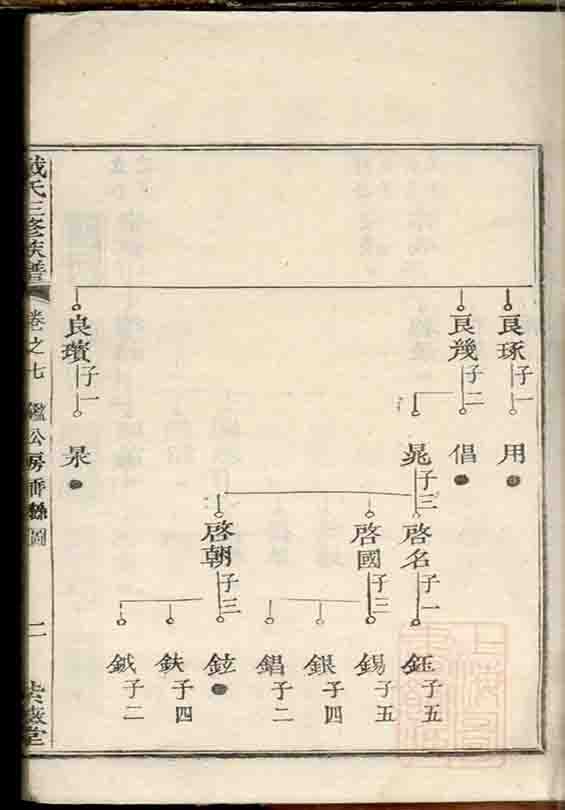 良琢 子一
良幾 子二
良璸 子一
用
倡
晁 子三
杲
啓名 子一
啓國 子三
啓朝 子三
鈺 子五
錫 子五
銀 子四
錩 子二
鉉
鈇 子四
鉞 子二
戴氏三修族譜
卷之七
鑑公房垂絲圖
二